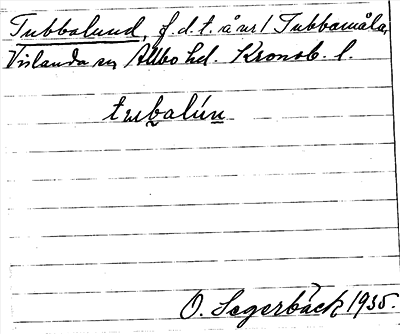 Tubbalund, f.d.t. å nr 1 Tubbamåla,
Vislanda sn, Allbo hd. Kronob. l.
tubalún
O. Segerbäck 1935.